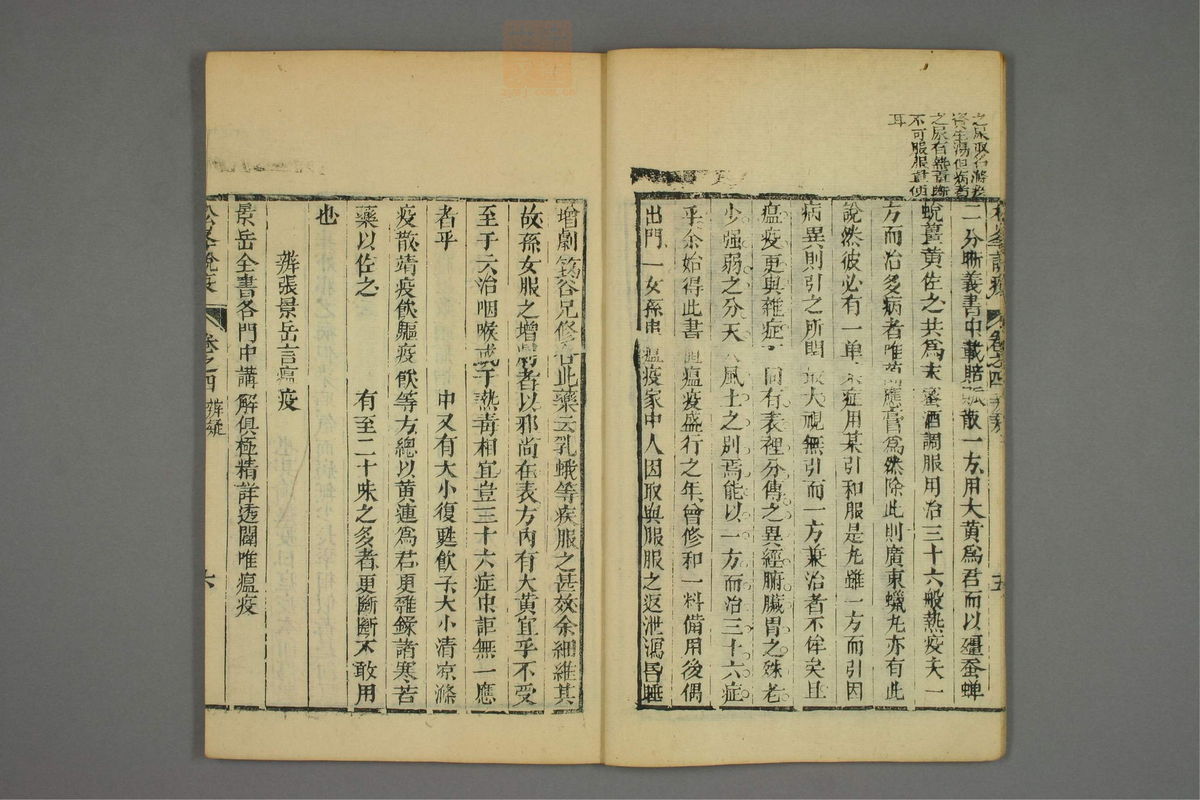 之尿取名
湯但病者
之尿有雜
不可服服
耳
二分晰義書中載賠散一方用大黃為君而以殭蚕蟬
蛻薑黃佐之共為末蜜酒調服用治三十六般熱疫夫一
方而治多病者唯應膏為然除此則廣東蠟丸亦有此
說然彼必有一单症用某引和服是丸雖一方而引因
病異則引之所関最大視無引而一方兼治者不侔矣且
瘟疫更與雜症同有表裡分傳之異經腑臟胃之殊老
少强弱之分天風土之別焉能以一方而治三十六症
乎余始得此書瘟疫盛行之年曾修和一料備用後偶
出門一女孫患瘟疫家中人因取與服服之返泄瀉昏睡
松峯說疫
卷之四
五
增劇筠谷兄修合此藥云乳蛾等疾服之甚效余細維其
故孫女服之增劇者以邪尚在表方内有大黃宜乎不受
至于云治咽喉或于熱毒相宜豈三十六症中詎無一應
者乎 中又有大小復甦飲子大小清凉滌
疫散靖疫飲驅疫飲等方總以黃連為君更雜錄諸寒苦
藥以佐之 有至二十味之多者更斷斷不敢用
也
辨張景岳言瘟疫
景岳全書各門中講解俱極精詳透闢唯瘟疫
松峯說疫
卷之四
辨疑
六